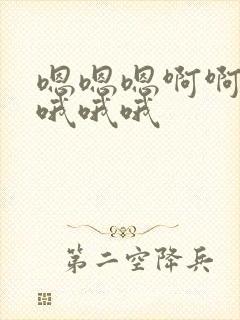 嗯嗯嗯啊啊
哦哦哦
第二空降兵